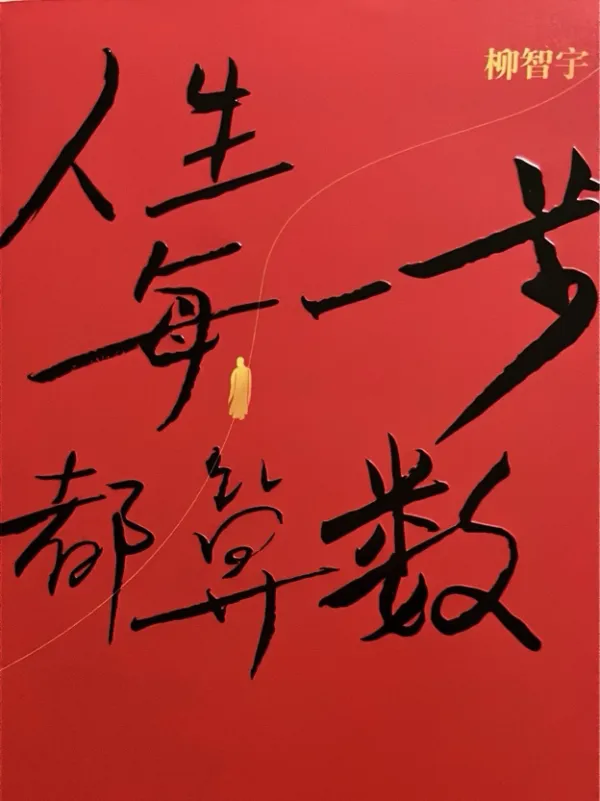 柳智宇
人生
每一步
都算数